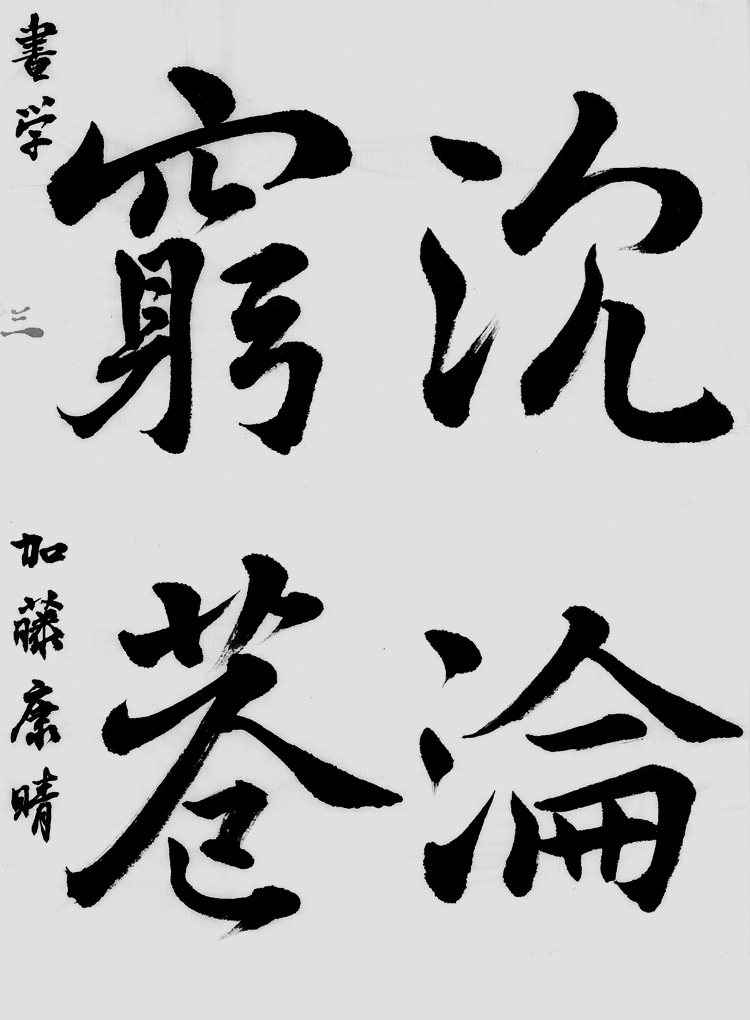 沉淪
窮巷
書学 三 加藤康晴